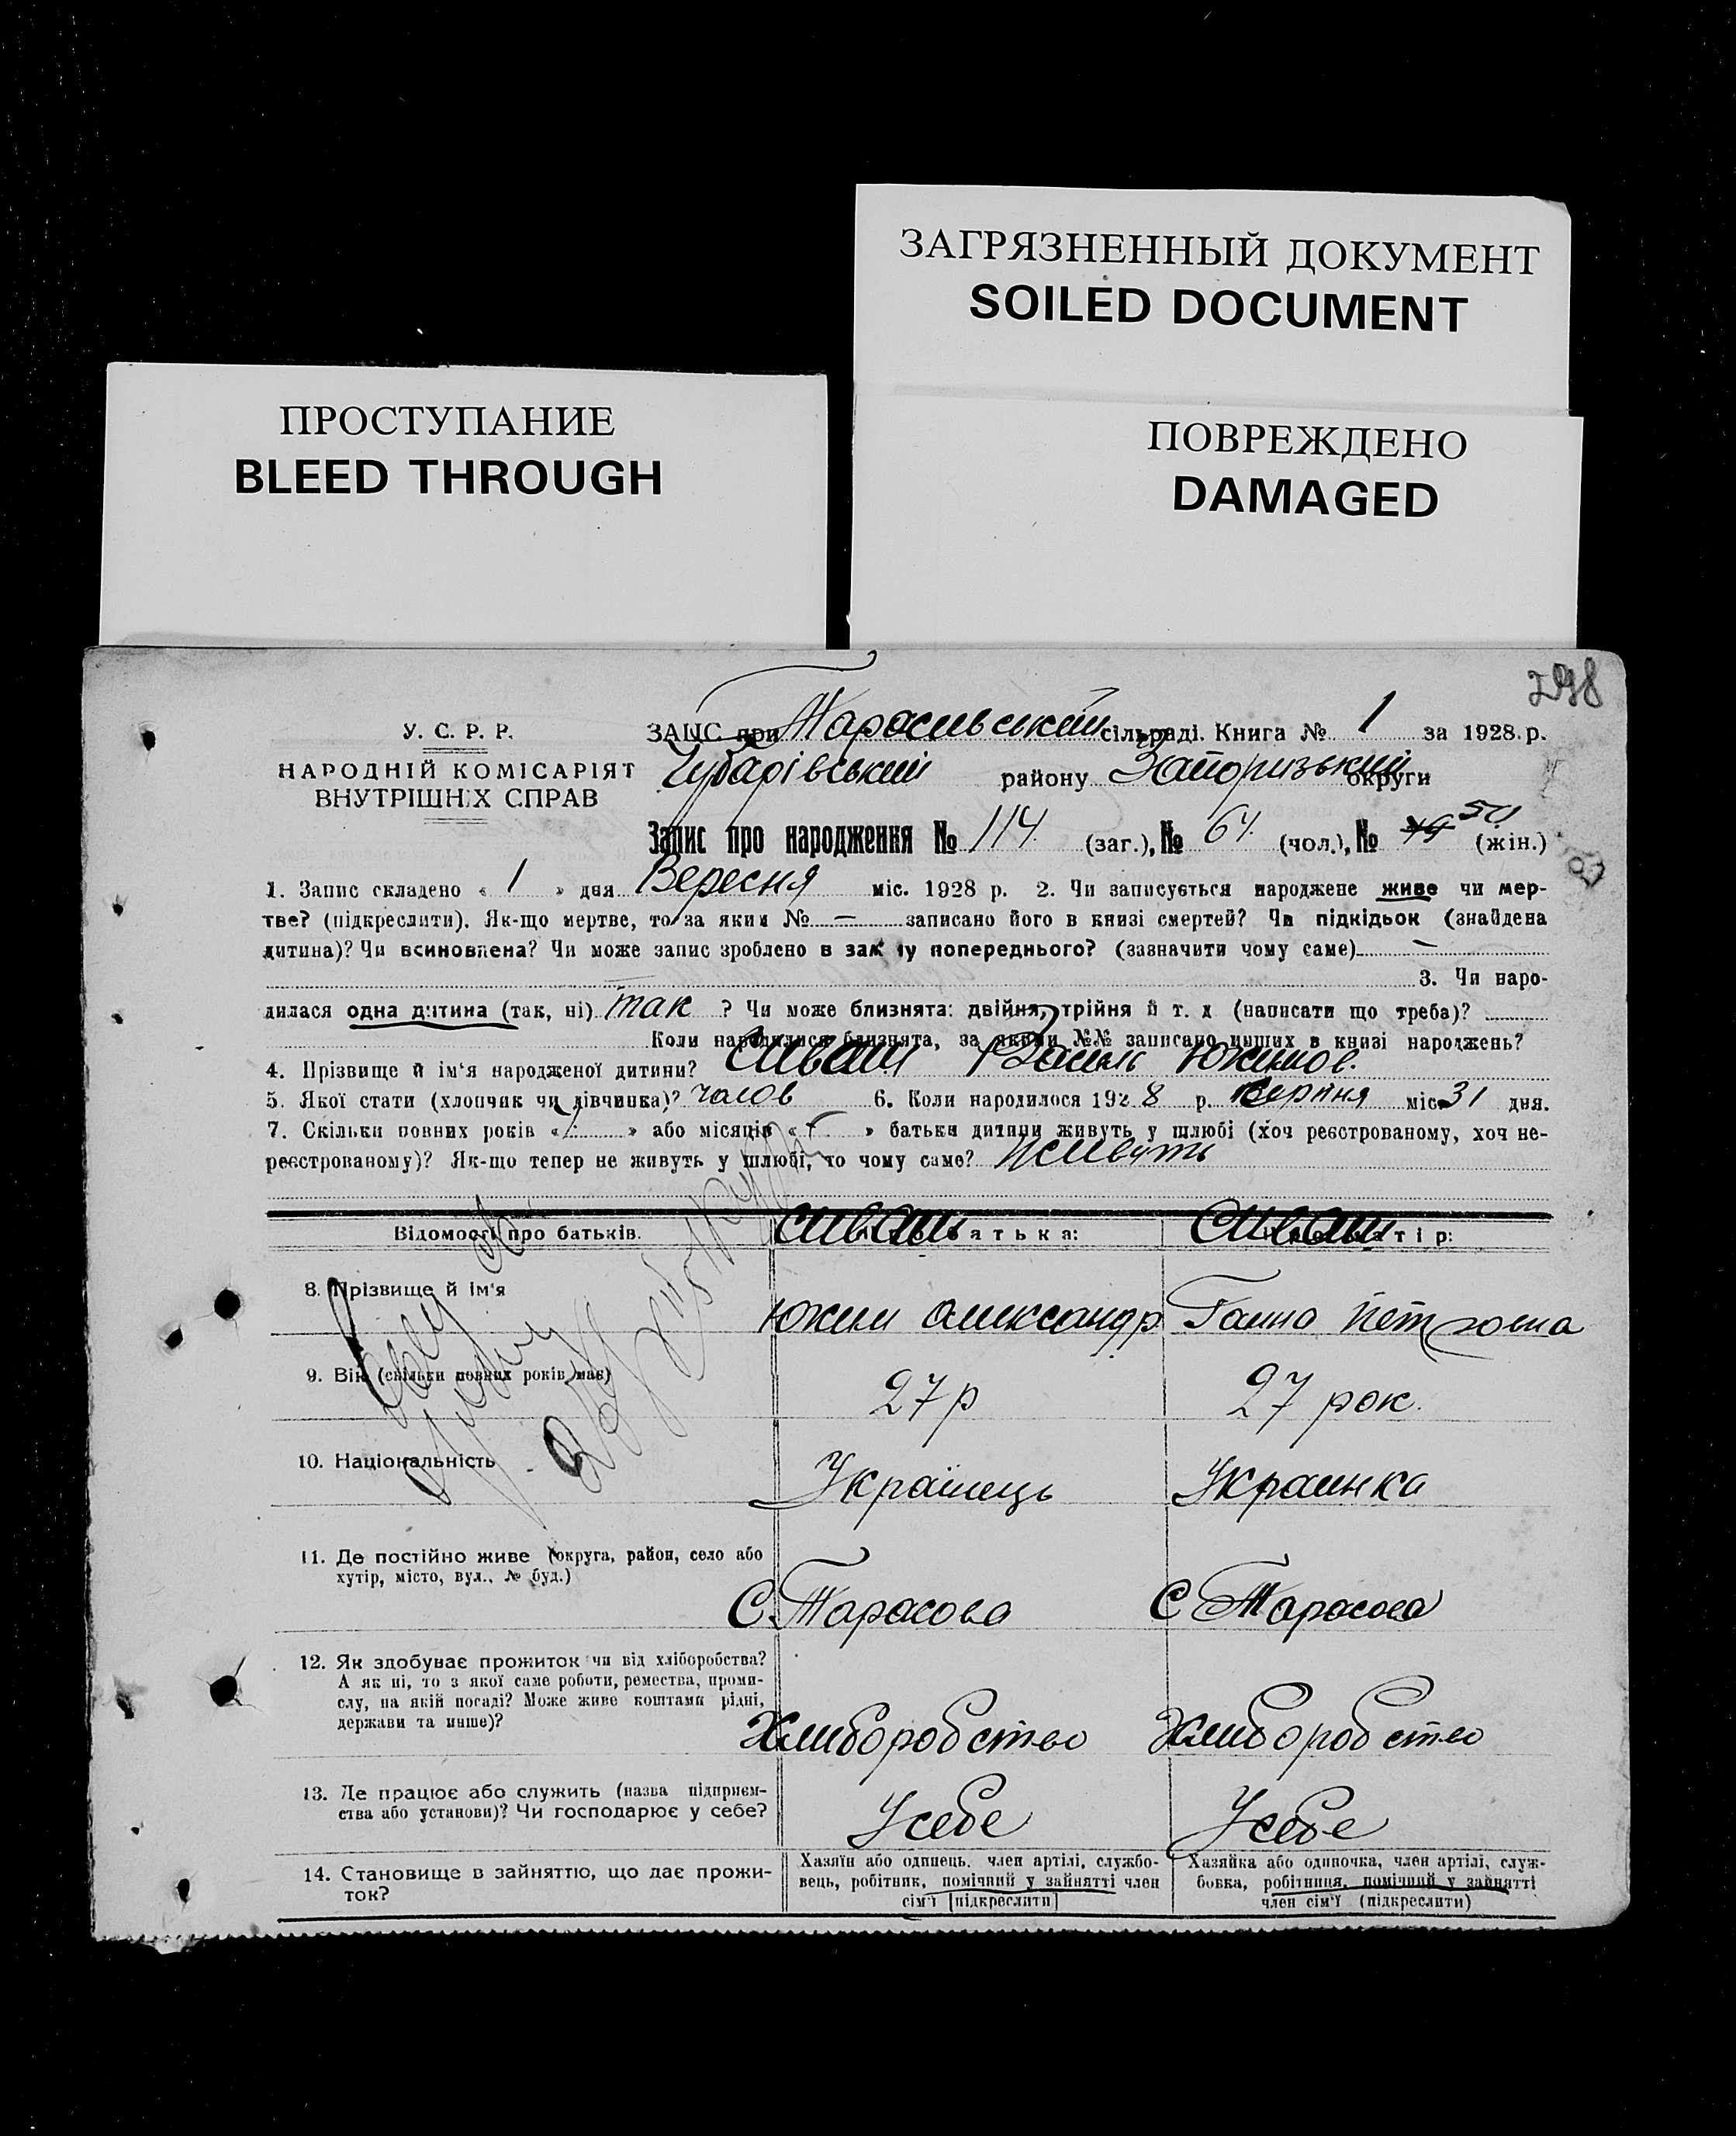 ЗАГРЯЗНЕННЫЙ ДОКУМЕНТ
SOILED DOCUMENT
ПРОСТУПАНИЕ
BLEED THROUGH
ПОВРЕЖДЕНО
DAMAGED
298
У. С. Р. Р.
НАРОДНІЙ КОМІСАРІЯТ
ВНУТРІШНІХ СПРАВ
ЗАЦС при Тарасівський сільраді. Книга № 1 за 1928 р.
Чубарівський району Запоризький округи
Запис про народження № 114 (заг.), № 64 (чол.), № 50 (жін.)
1. Запис складено « 1 » дня Вересня міс. 1928 р. 2. Чи записується народжене живе чи мер-
тве? (підкреслити). Як-що мертве, то за яким № — записано його в книзі смертей? Чи підкідьок (знайдена
дитина)? Чи всиновлена? Чи може запис зроблено в заміну попереднього? (зазначити чому саме) —
3. Чи наро-
дилася одна дитина (так, ні) так ? Чи може близнята: двійня, трійня й т. д (написати що треба)?
Коли народилися близнята, за якими №№ записано инших в книзі народжень?
4. Прізвище й ім'я народженої дитини? Сиваш Василь Южимов.
5. Якої стати (хлопчик чи дівчинка)? чолов 6. Коли народилося 1928 р. Серпня міс. 31 дня.
7. Скільки повних років « » або місяців « » батьки дитини живуть у шлюбі (хоч реєстрованому, хоч не-
реєстрованому)? Як-що тепер не живуть у шлюбі, то чому саме? живуть
Відомості про батьків. Сиваш батька: Сиваш матір:
8. Прізвище й ім'я Южим Олександр Ганна Петровна
9. Вік (скільки повних років має) 27 р 27 рок.
10. Національність Украінець Украинка
11. Де постійно живе (округа, район, село або
хутір, місто, вул., № буд.) С. Тарасова С Тарасова
12. Як здобуває прожиток чи від хліборобства?
А як ні, то з якої саме роботи, ремества, проми-
слу, на якій посаді? Може живе коштами рідні,
держави та инше)? Хлиборобство Хлиборобство
13. Де працює або служить (назва підприєм-
ства або установи)? Чи господарює у себе? У себе У себе
14. Становище в зайняттю, що дає прожи-
ток?
Хазяїн або одинець. член артілі, службо-
вець, робітник, помічний у зайнятті член
сім'ї (підкреслити)
Хазяйка або одиночка, член артілі, служ-
бовка, робітниця, помічний у зайнятті
член сім'ї (підкреслити)